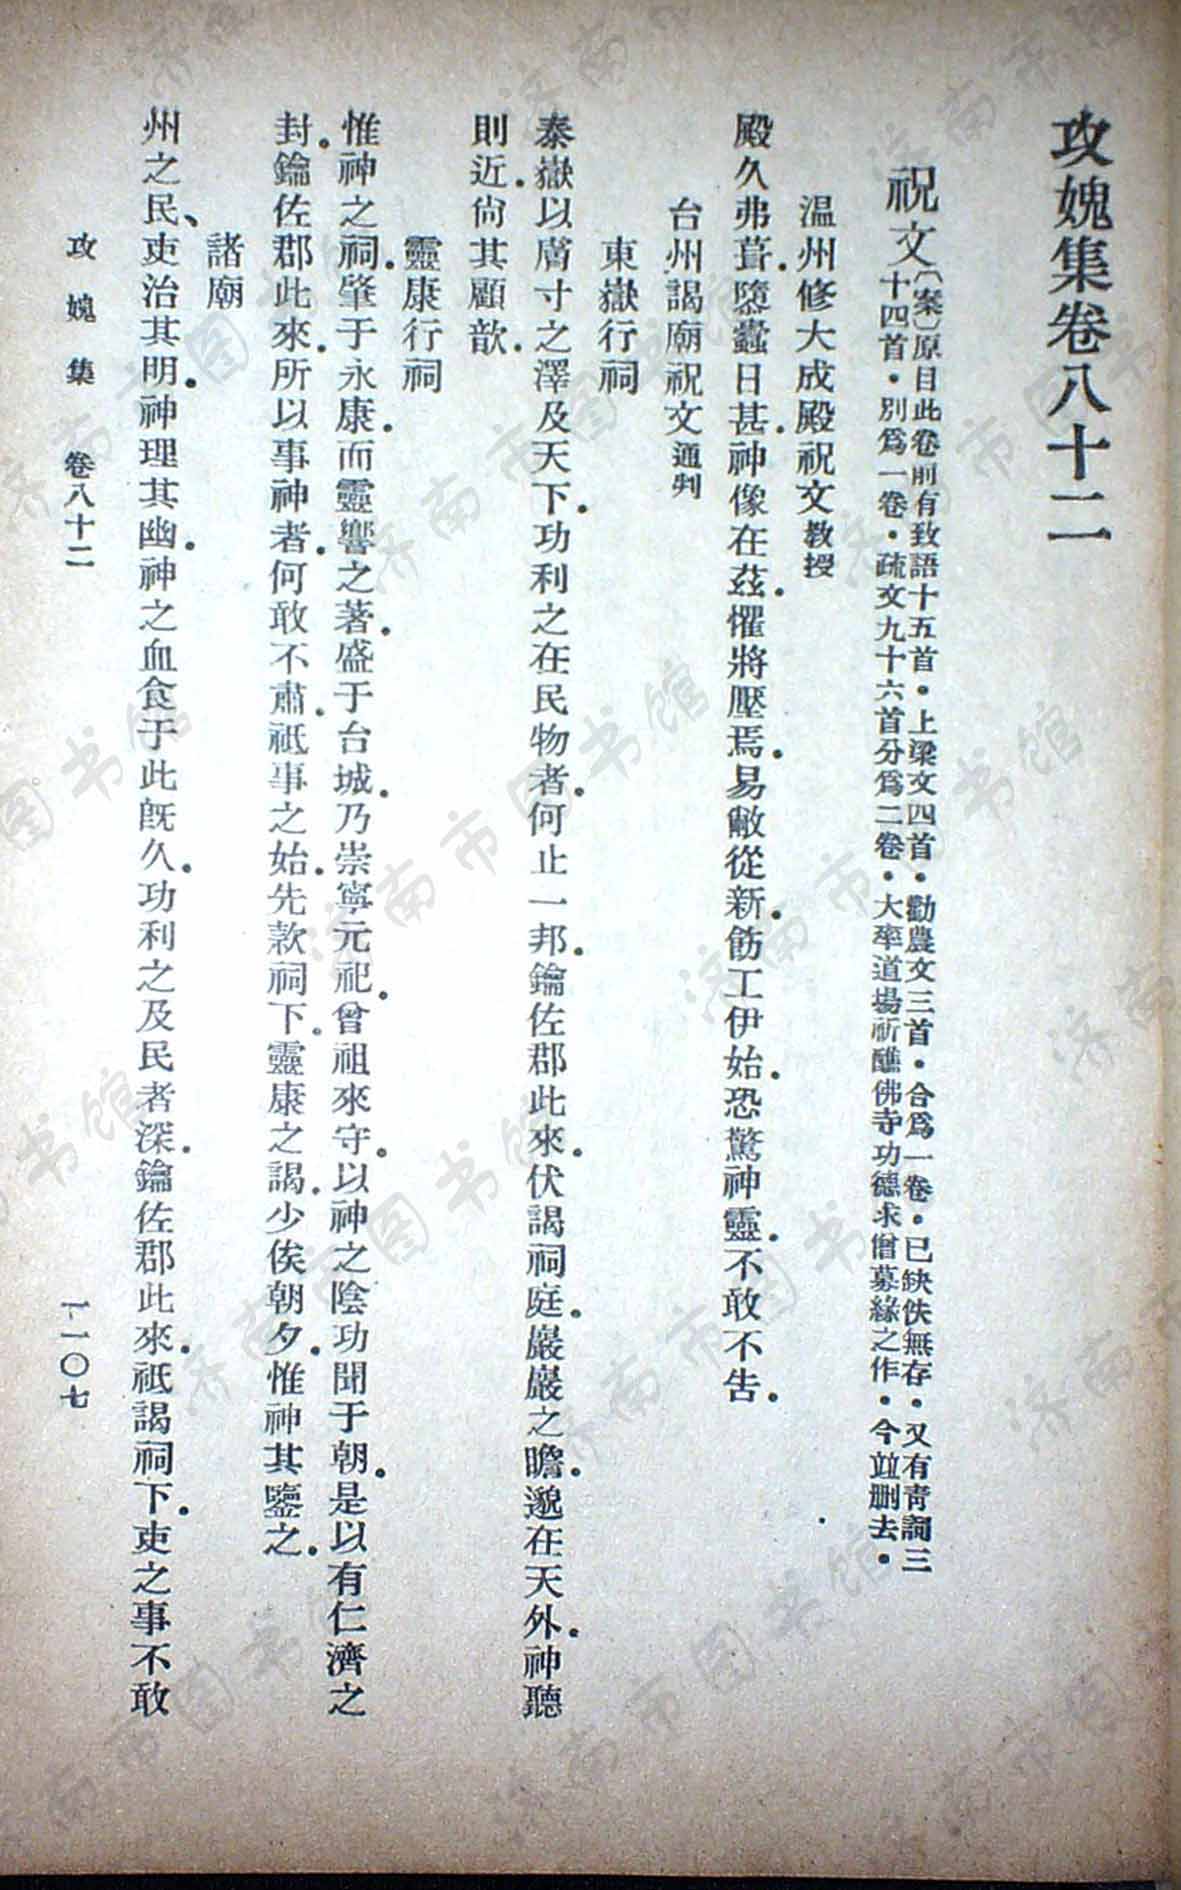 攻媿集卷八十二
祝文〔案〕原目此卷前有致語十五首．上梁文四首．勸農文三首．合爲一卷．已缺佚無存．又有青詞三
十四首．別爲一卷．疏文九十六首分爲二卷．大率道場祈醮佛寺功德求僧募緣之作．今竝删去．
温州修大成殿祝文教授
殿久弗葺．隳蠹日甚．神像在茲．懼將壓焉．易敝從新．飭工伊始．恐驚神靈．不敢不告．
台州謁廟祝文通判
東嶽行祠
泰嶽以膚寸之澤及天下．功利之在民物者．何止一邦．鑰佐郡此來．伏謁祠庭．巖巖之瞻．邈在天外．神聽
則近．尙其顧歆．
靈康行祠
惟神之祠．肇于永康．而靈響之著．盛于台城．乃崇寧元祀．曾祖來守．以神之陰功聞于朝．是以有仁濟之
封．鑰佐郡此來．所以事神者．何敢不肅．祇事之始．先款祠下．靈康之謁．少俟朝夕．惟神其鑒之．
諸廟
州之民、吏治其明．神理其幽．神之血食于此旣久．功利之及民者深．鑰佐郡此來．祇謁祠下．吏之事不敢
攻媿集 卷八十二
一一〇七
济南市图书馆